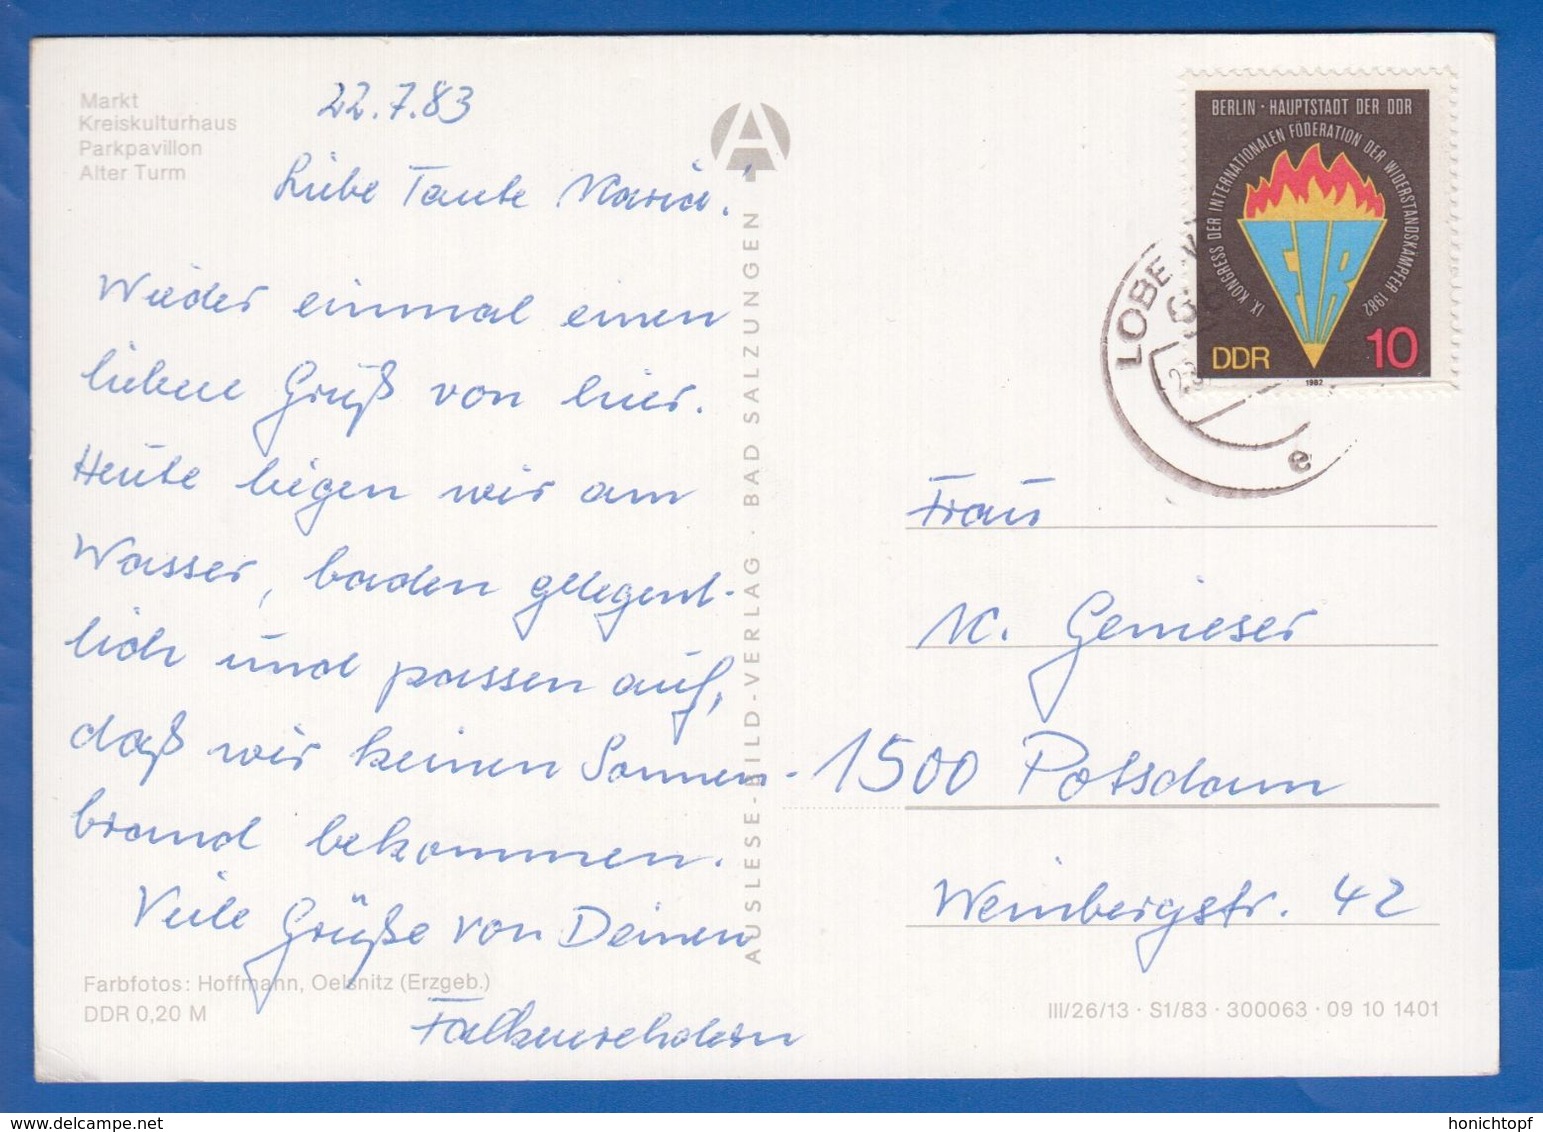 Markt
Kreiskulturhaus
Parkpavillon
Alter Turm
22.7.83
Liebe Tante Maria!
Wieder einmal einen
lieben Gruß von hier.
Heute liegen wir am
Wasser, baden gelegent-
lich und passen auf,
daß wir keinen Sonnen-
brand bekommen.
Viele Grüße von Deinen
Falkenrehdern
Farbfotos: Hoffmann, Oelsnitz (Erzgeb.)
DDR 0,20 M
AUSLESE-BILD-VERLAG · BAD SALZUNGEN
BERLIN · HAUPTSTADT DER DDR
IX. KONGRESS DER INTERNATIONALEN FÖDERATION DER WIDERSTANDSKÄMPFER 1982
FIR
DDR
10
1982
LOBE
e
Frau
M. Genieser
1500 Potsdam
Weinbergstr. 42
III/26/13 · S1/83 · 300063 · 09 10 1401
honichtopf
delcampe.net